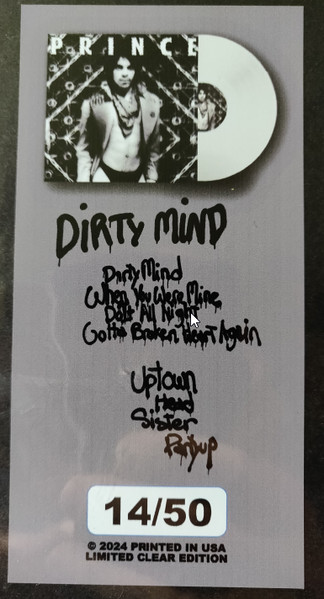 PRINCE
DIRTY MIND
Dirty Mind
When You Were Mine
Do It All Night
Gotta Broken Heart Again
Uptown
Head
Sister
Partyup
14/50
© 2024 PRINTED IN USA
LIMITED CLEAR EDITION